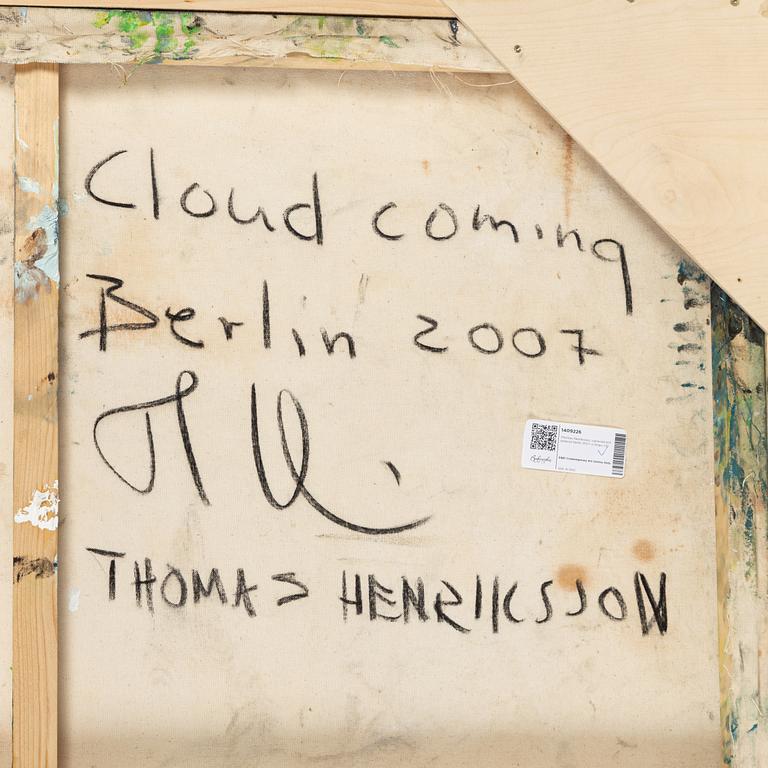 Cloud coming
Berlin 2007
THOMAS HENRIKSSON
1409226